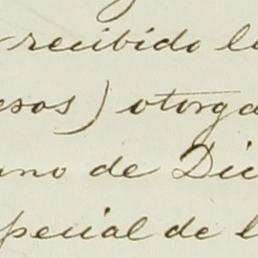 recibido l
esos) otorga
uno de Dic
pecial de l